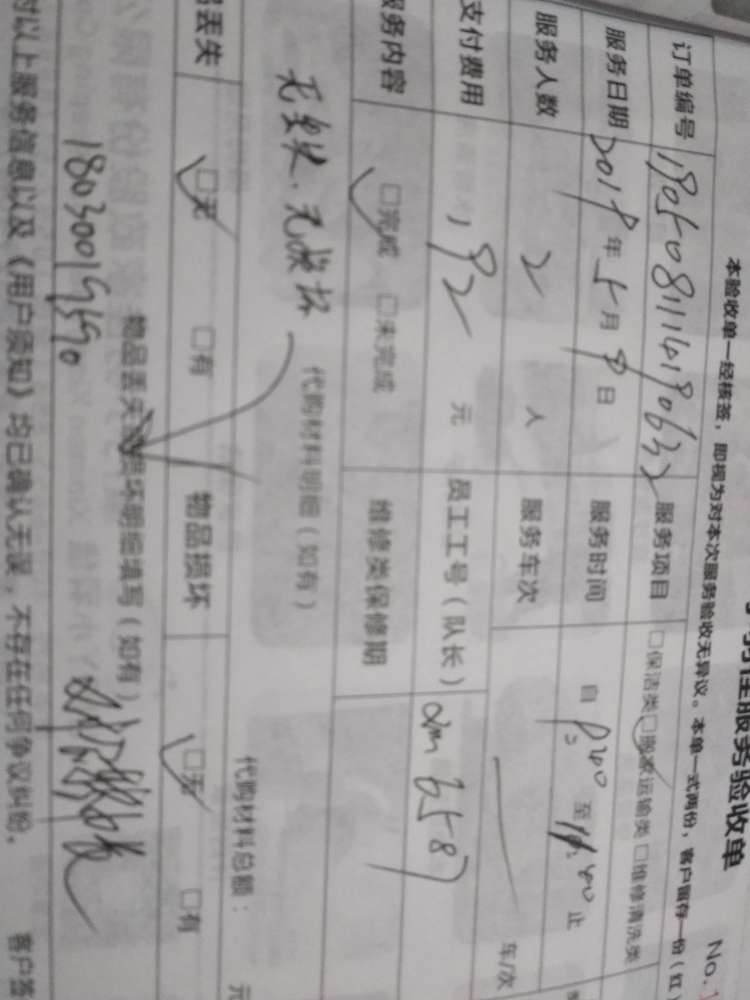 性服务验收单
No.1
本验收单一经核签，即视为对本次服务验收无异议。本单一式两份，客户留存一份（红
订单编号 服务项目 □保洁类□搬家运输类□维修清洗类
服务日期 2018年5月8日 服务时间 自 8:40 至 11:40 止
服务人数 2 人 服务车次 车/次
支付费用 192 元 员工工号（队长） 6587
服务内容 □完成 □未完成 维修类保修期
代购材料明细（如有） 代购材料总额： 元
无丢失、无损坏
品丢失 □无 □有 物品损坏 □无 □有
物品丢失 损坏明细填写（如有）
对以上服务信息以及《用户须知》均已确认无误，不存在任何争议纠纷。 客户签